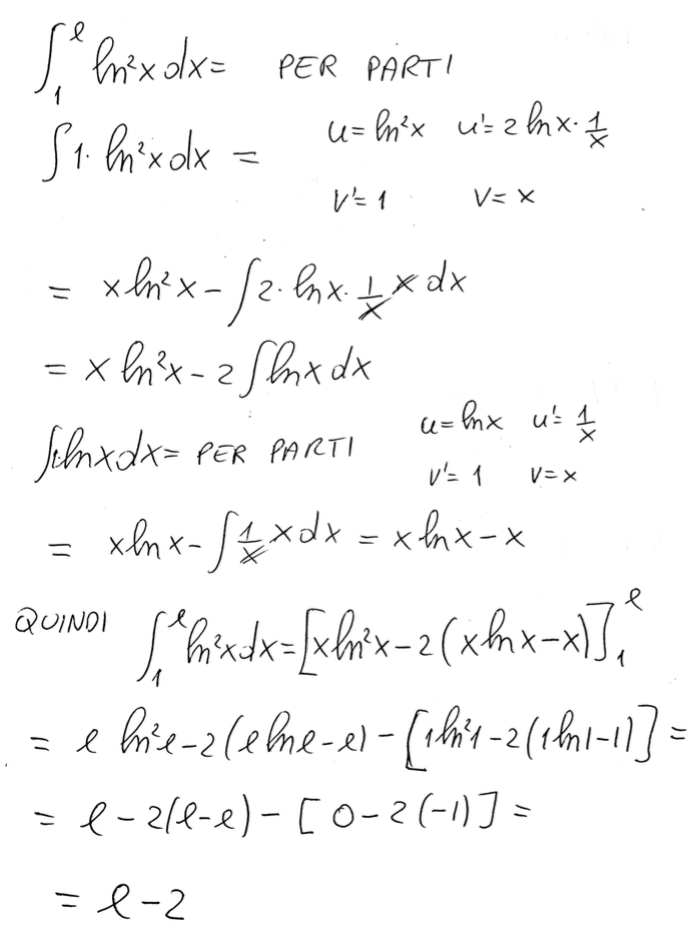 ∫₁ᵉ ln²x dx = PER PARTI
∫ 1· ln²x dx = u = ln²x u' = 2 ln x · 1/x
v' = 1 v = x
= x ln²x - ∫ 2 · ln x · 1/x x dx
= x ln²x - 2 ∫ ln x dx
∫ 1· ln x dx = PER PARTI u = ln x u' = 1/x
v' = 1 v = x
= x ln x - ∫ 1/x x dx = x ln x - x
QUINDI ∫₁ᵉ ln²x dx = [x ln²x - 2 (x ln x - x)]₁ᵉ
= e ln²e - 2 (e ln e - e) - [1 ln²1 - 2 (1 ln 1 - 1)] =
= e - 2(e - e) - [0 - 2 (-1)] =
= e - 2